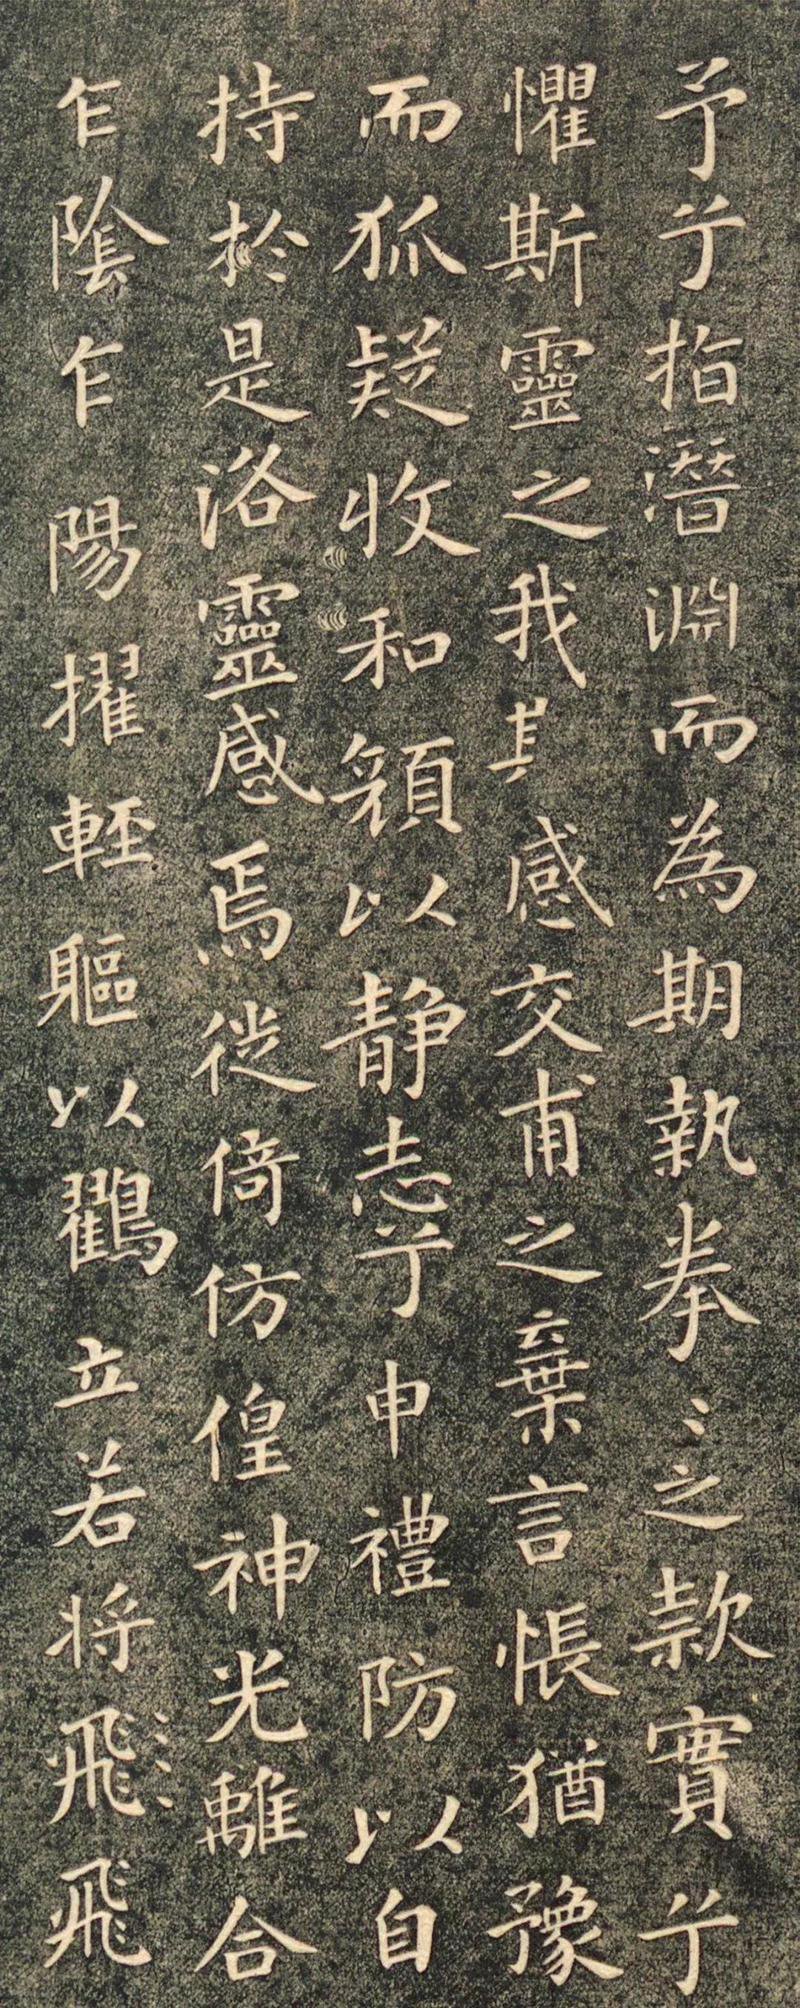 予兮指潛淵而為期執拳〻之款實兮
懼斯靈之我其感交甫之棄言悵猶豫
而狐疑收和顏以静志兮申禮防以自
持於是洛靈感焉徙倚仿偟神光離合
乍陰乍陽擢輕軀以鸖立若将飛飛